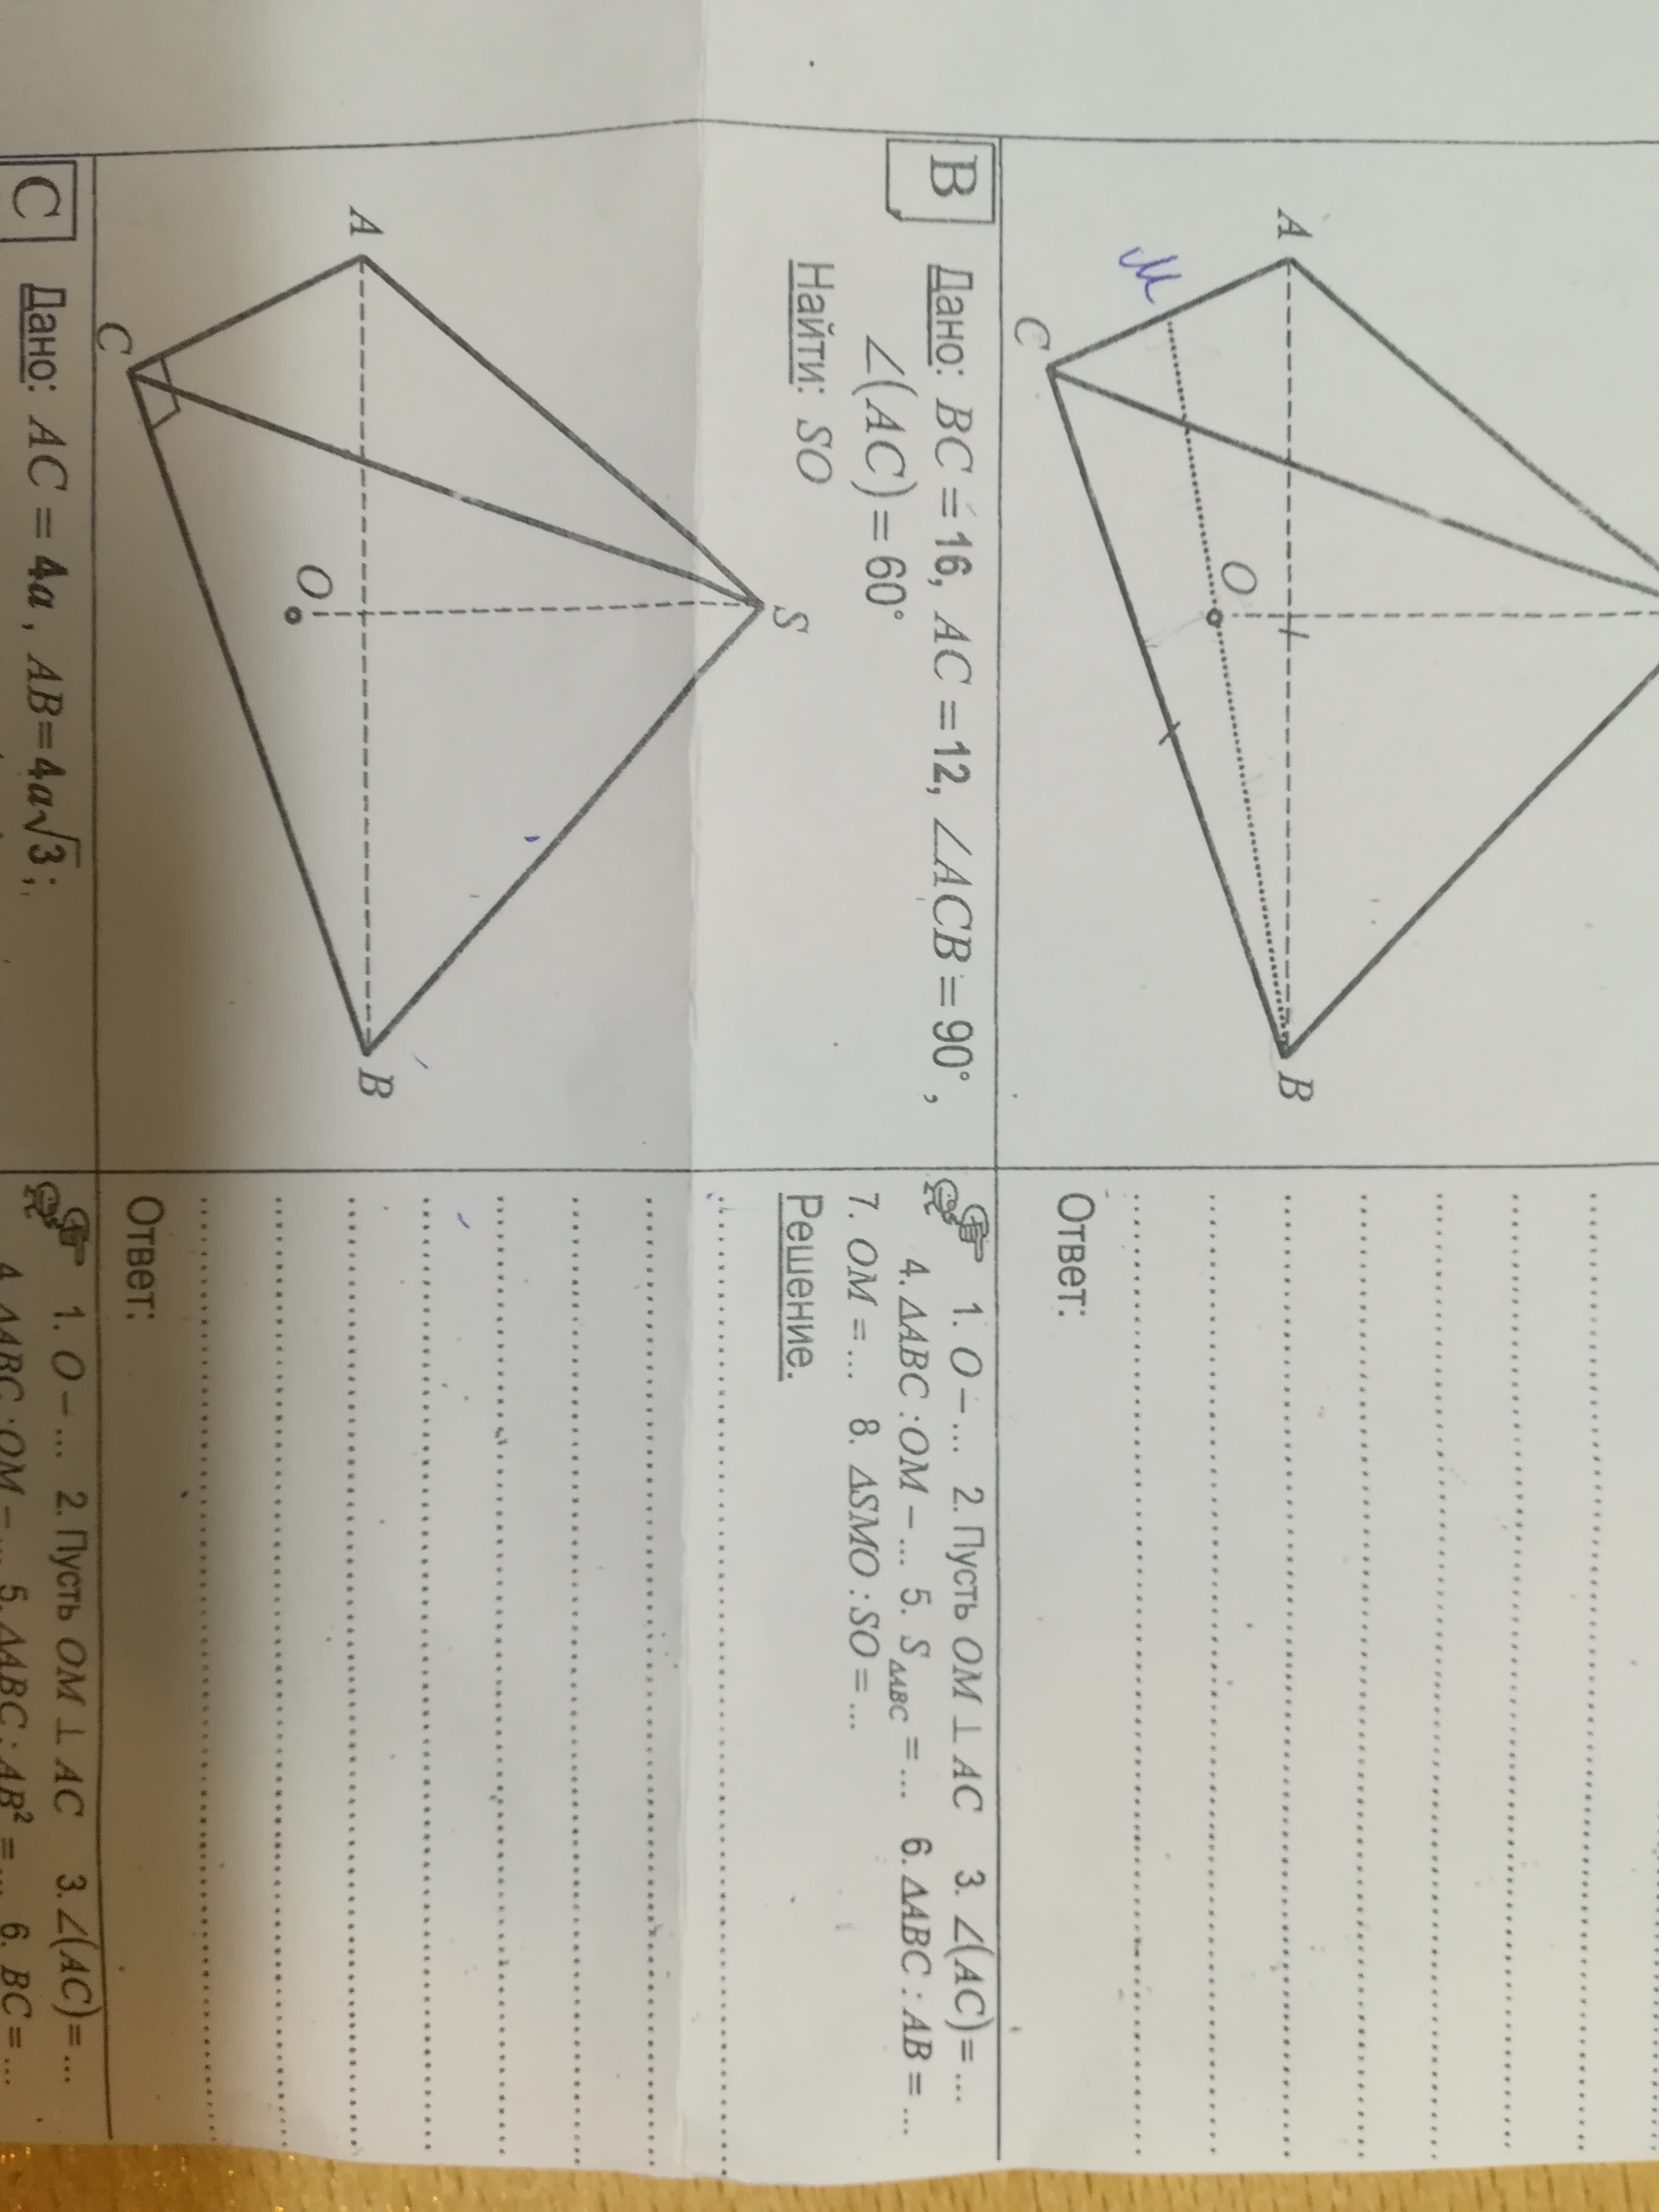 A
M
C
O
B
Ответ:
B
Дано: BC=16, AC=12, ∠ACB=90°,
∠(AC)=60°
Найти: SO
S
A
C
O
B
1. O–... 2. Пусть OM ⊥ AC 3. ∠(AC)=...
4. ΔABC : OM – ... 5. S ΔABC = ... 6. ΔABC : AB = ...
7. OM = ... 8. ΔSMO : SO = ...
Решение.
Ответ:
C
Дано: AC = 4a, AB=4a√3;
1. O – ... 2. Пусть OM ⊥ AC 3. ∠(AC)= ...
4. ΔABC : OM – ... 5. ΔABC : AB² = ... 6. BC = ...